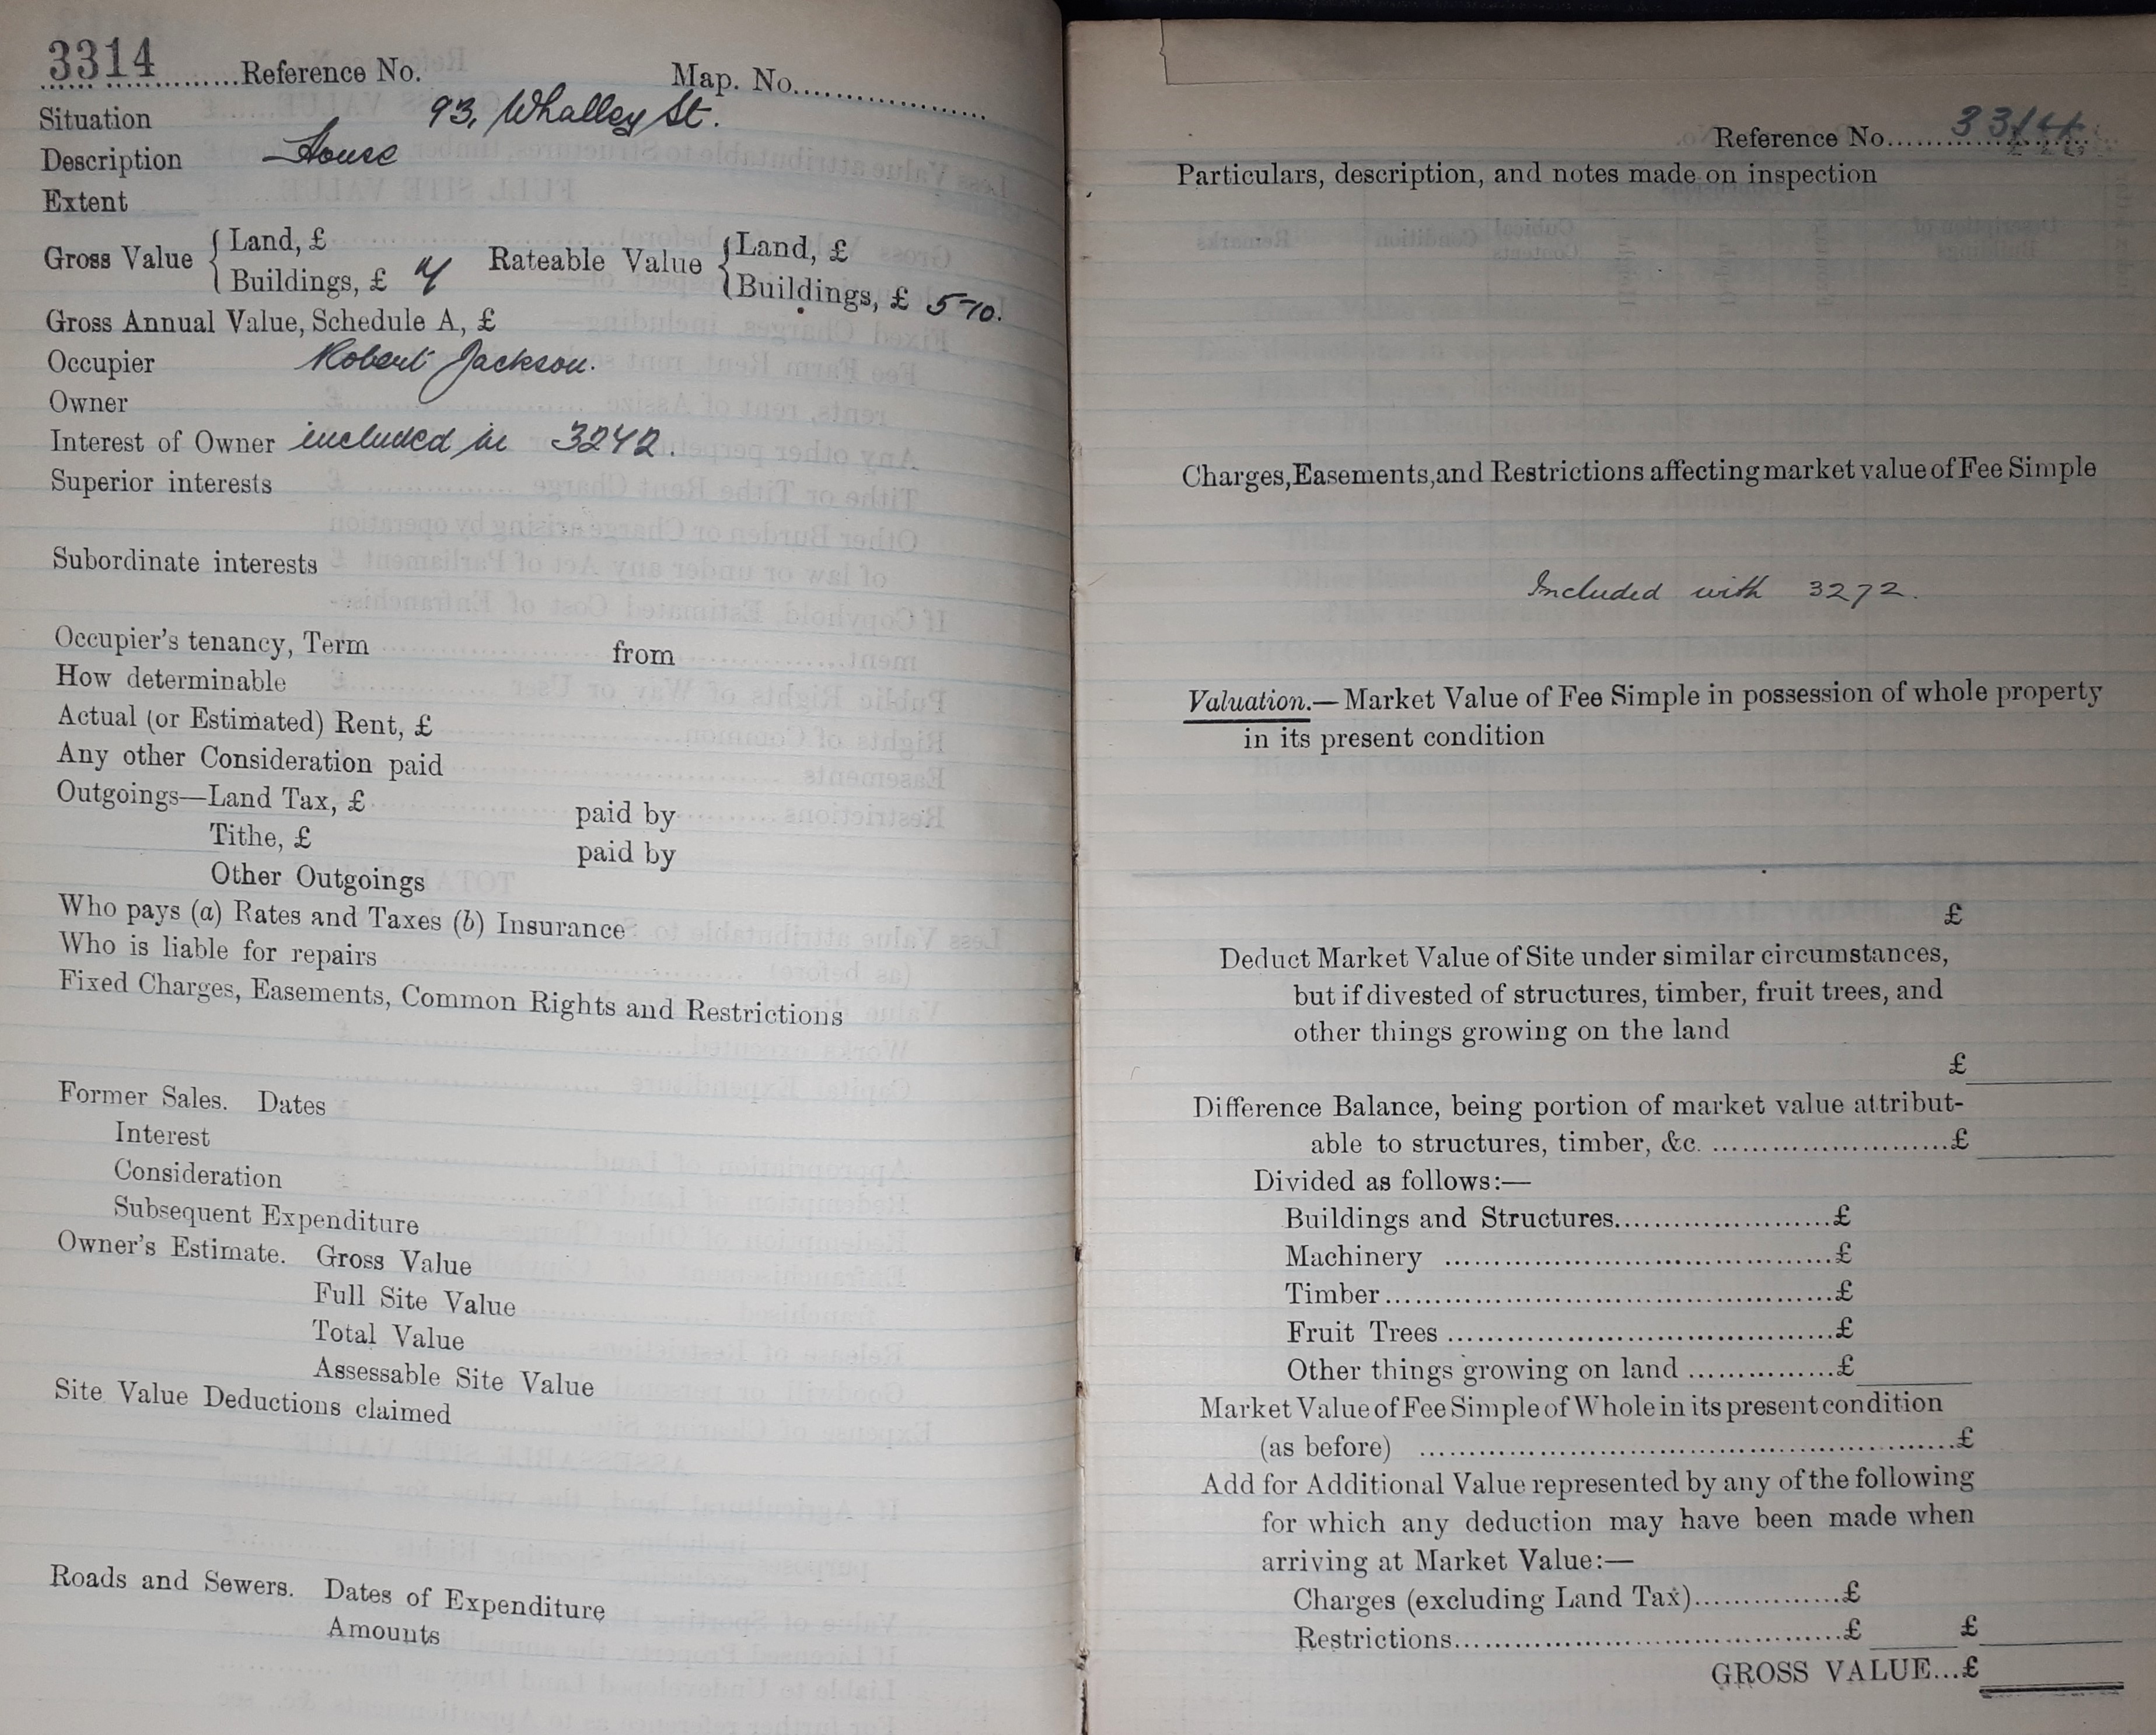 3314 Reference No. Map. No.
Situation 93, Whalley St.
Description House
Extent
Gross Value { Land, £
Buildings, £ Rateable Value { Land, £
Buildings, £ 5-10.
Gross Annual Value, Schedule A, £
Occupier Robert Jackson.
Owner
Interest of Owner included in 3242.
Superior interests
Subordinate interests
Occupier's tenancy, Term from
How determinable
Actual (or Estimated) Rent, £
Any other Consideration paid
Outgoings—Land Tax, £ paid by
Tithe, £ paid by
Other Outgoings
Who pays (a) Rates and Taxes (b) Insurance
Who is liable for repairs
Fixed Charges, Easements, Common Rights and Restrictions
Former Sales. Dates
Interest
Consideration
Subsequent Expenditure
Owner's Estimate. Gross Value
Full Site Value
Total Value
Assessable Site Value
Site Value Deductions claimed
Roads and Sewers. Dates of Expenditure
Amounts
Reference No. 3314
Particulars, description, and notes made on inspection
Charges, Easements, and Restrictions affecting market value of Fee Simple
Included with 3272.
Valuation.—Market Value of Fee Simple in possession of whole property
in its present condition
£
Deduct Market Value of Site under similar circumstances,
but if divested of structures, timber, fruit trees, and
other things growing on the land
£
Difference Balance, being portion of market value attribut-
able to structures, timber, &c. £
Divided as follows:—
Buildings and Structures £
Machinery £
Timber £
Fruit Trees £
Other things growing on land £
Market Value of Fee Simple of Whole in its present condition
(as before) £
Add for Additional Value represented by any of the following
for which any deduction may have been made when
arriving at Market Value:—
Charges (excluding Land Tax) £
Restrictions £ £
GROSS VALUE...£